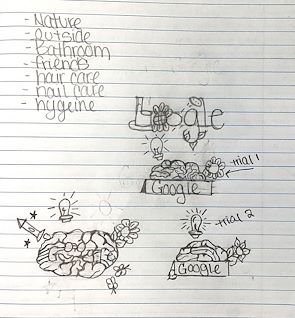 - Nature
- outside
- Bathroom
- friends
- hair care
- nail care
- hygeine
Google
trial 1
Google
trial 2
Google